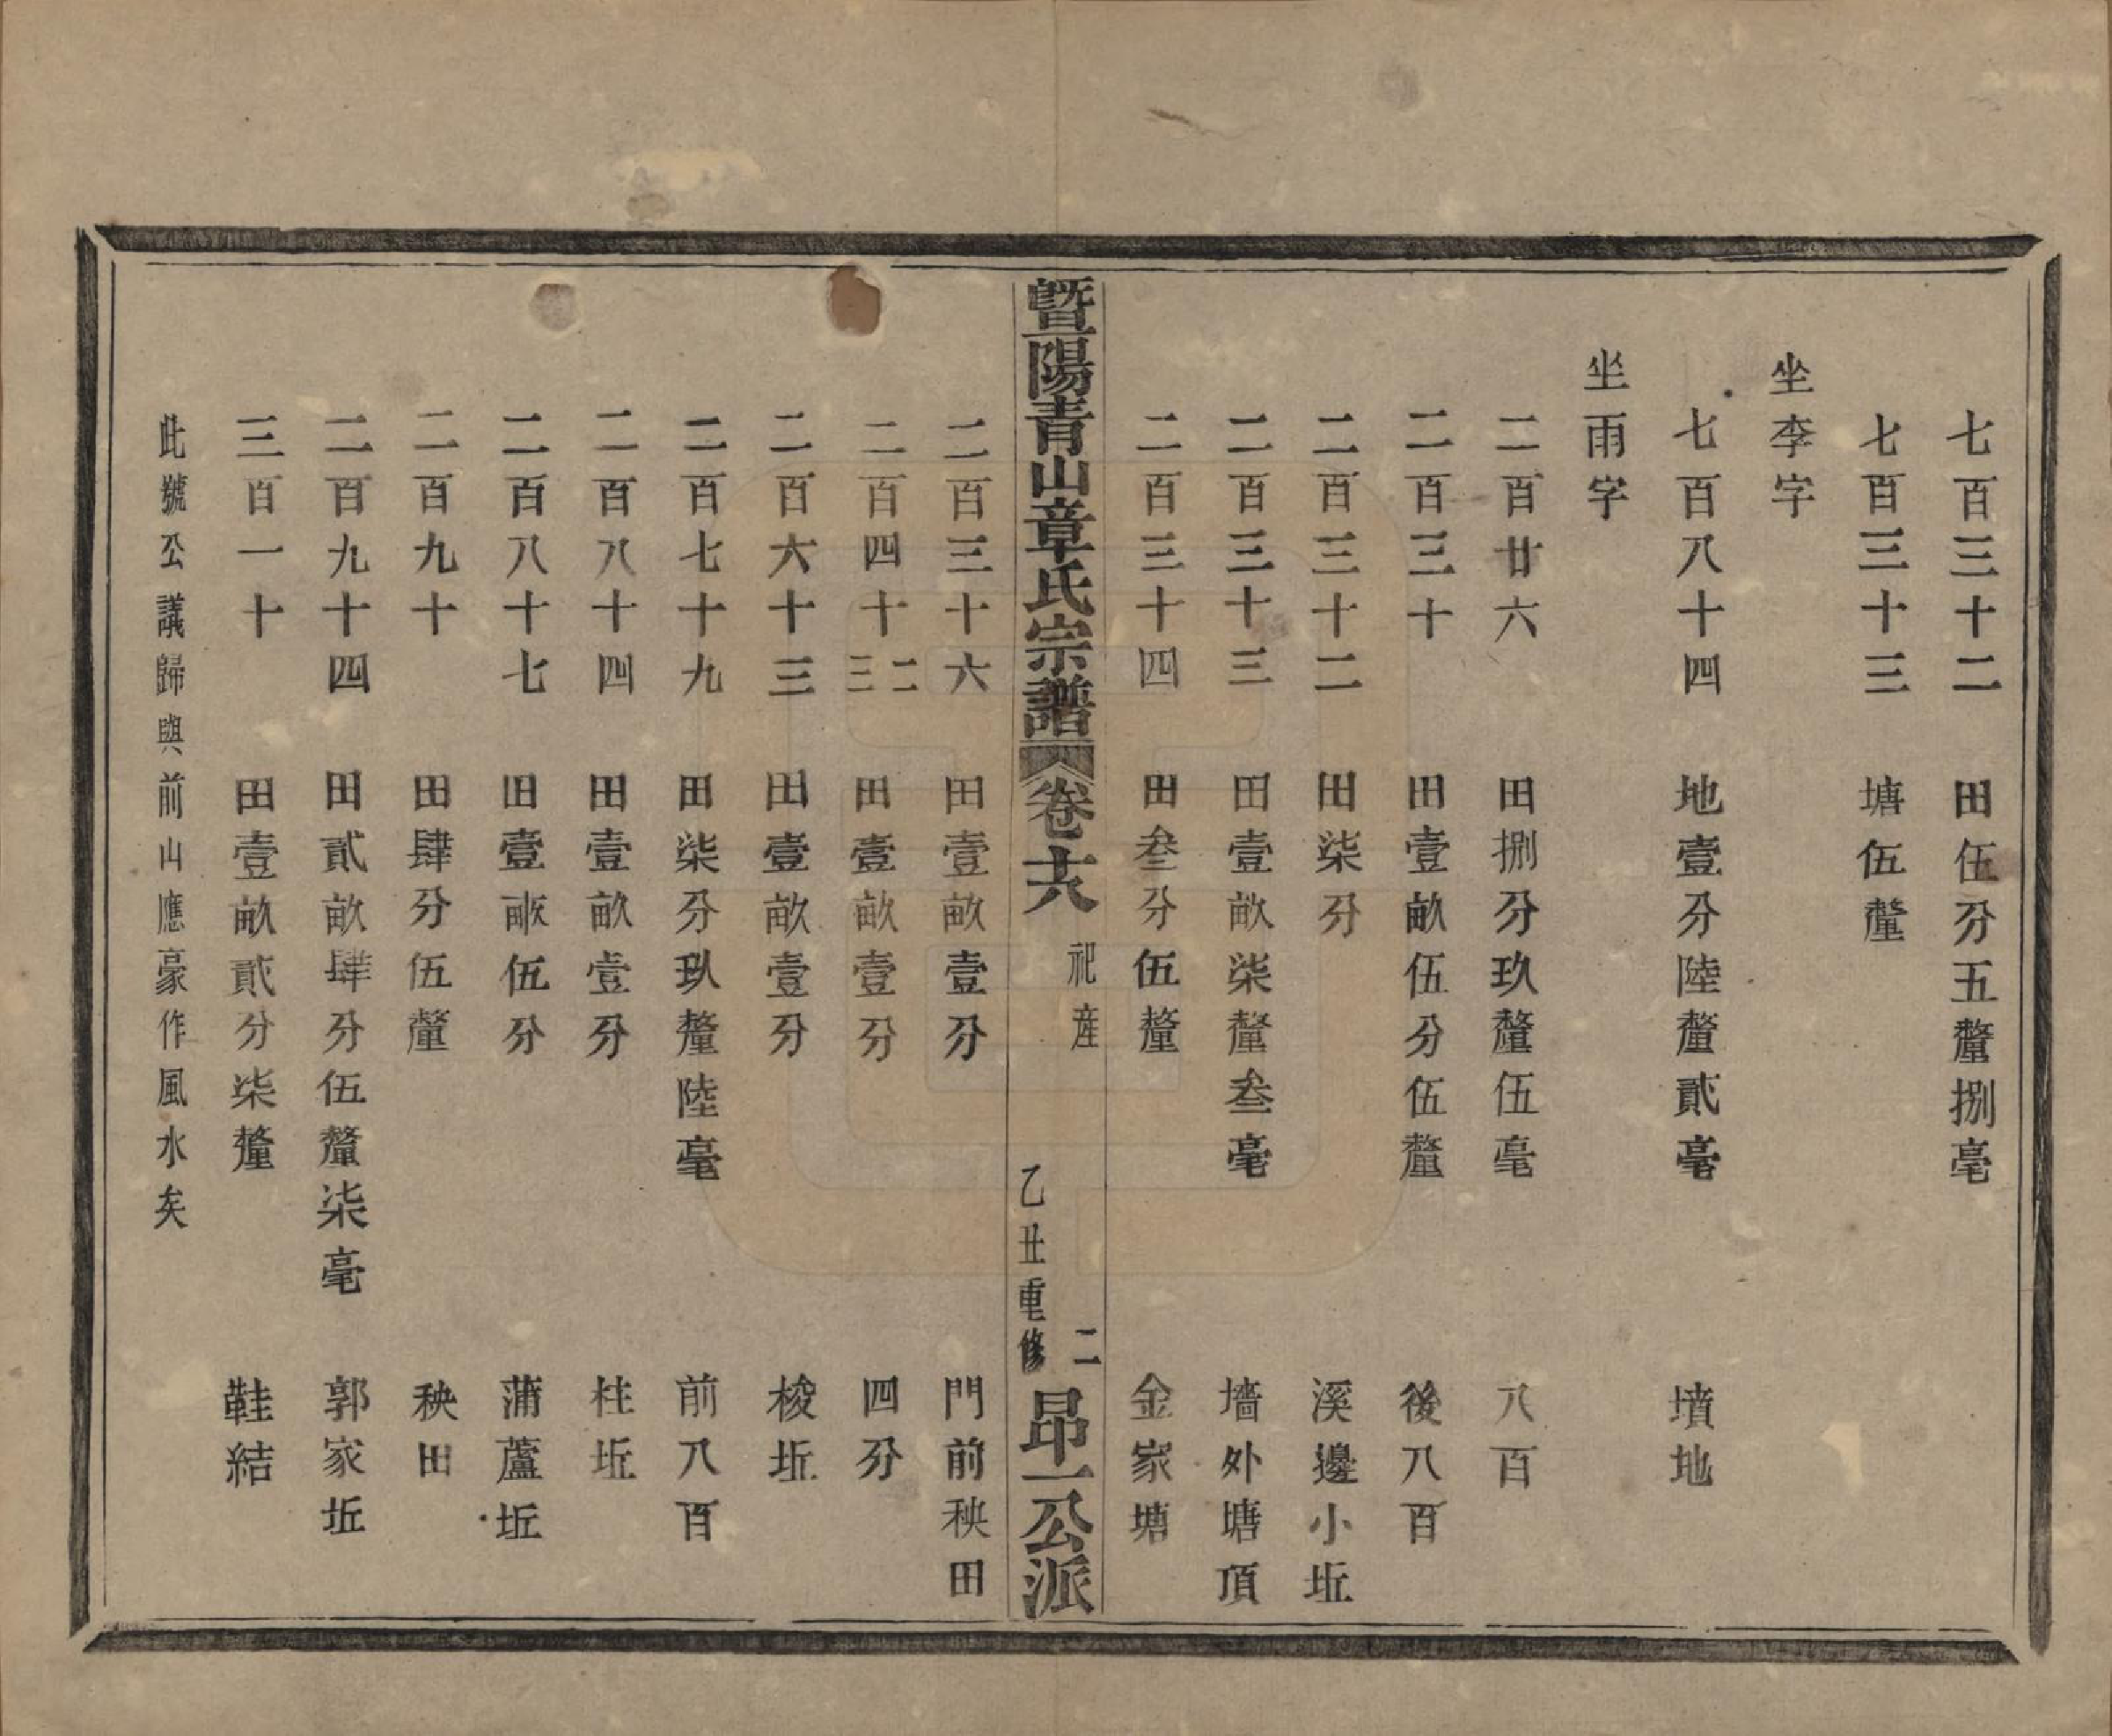 七百三十二　田伍分五釐捌毫
七百三十三　塘伍釐
坐李字
七百八十四　地壹分陸釐貳毫　墳地
坐雨字
二百廿六　田捌分玖釐伍毫　八百
二百三十　田壹畝伍分伍釐　後八百
二百三十二　田柒分　溪邊小坵
二百三十三　田壹畝柒釐叁毫　墻外塘頂
二百三十四　田叁分伍釐　金家塘
暨陽青山章氏宗譜　卷十六　祀產　二　乙丑重修　昂一公派
二百三十六　田壹畝壹分　門前秧田
二百四十二三　田壹畝壹分　四分
二百六十三　田壹畝壹分　梭坵
二百七十九　田柒分玖釐陸毫　前八百
二百八十四　田壹畝壹分　柱坵
二百八十七　田壹畝伍分　蒲蘆坵
二百九十　田肆分伍釐　秧田
二百九十四　田貳畝肆分伍釐柒毫　郭家坵
三百一十　田壹畝貳分柒釐　鞋結
此號公議歸與前山應豪作風水矣